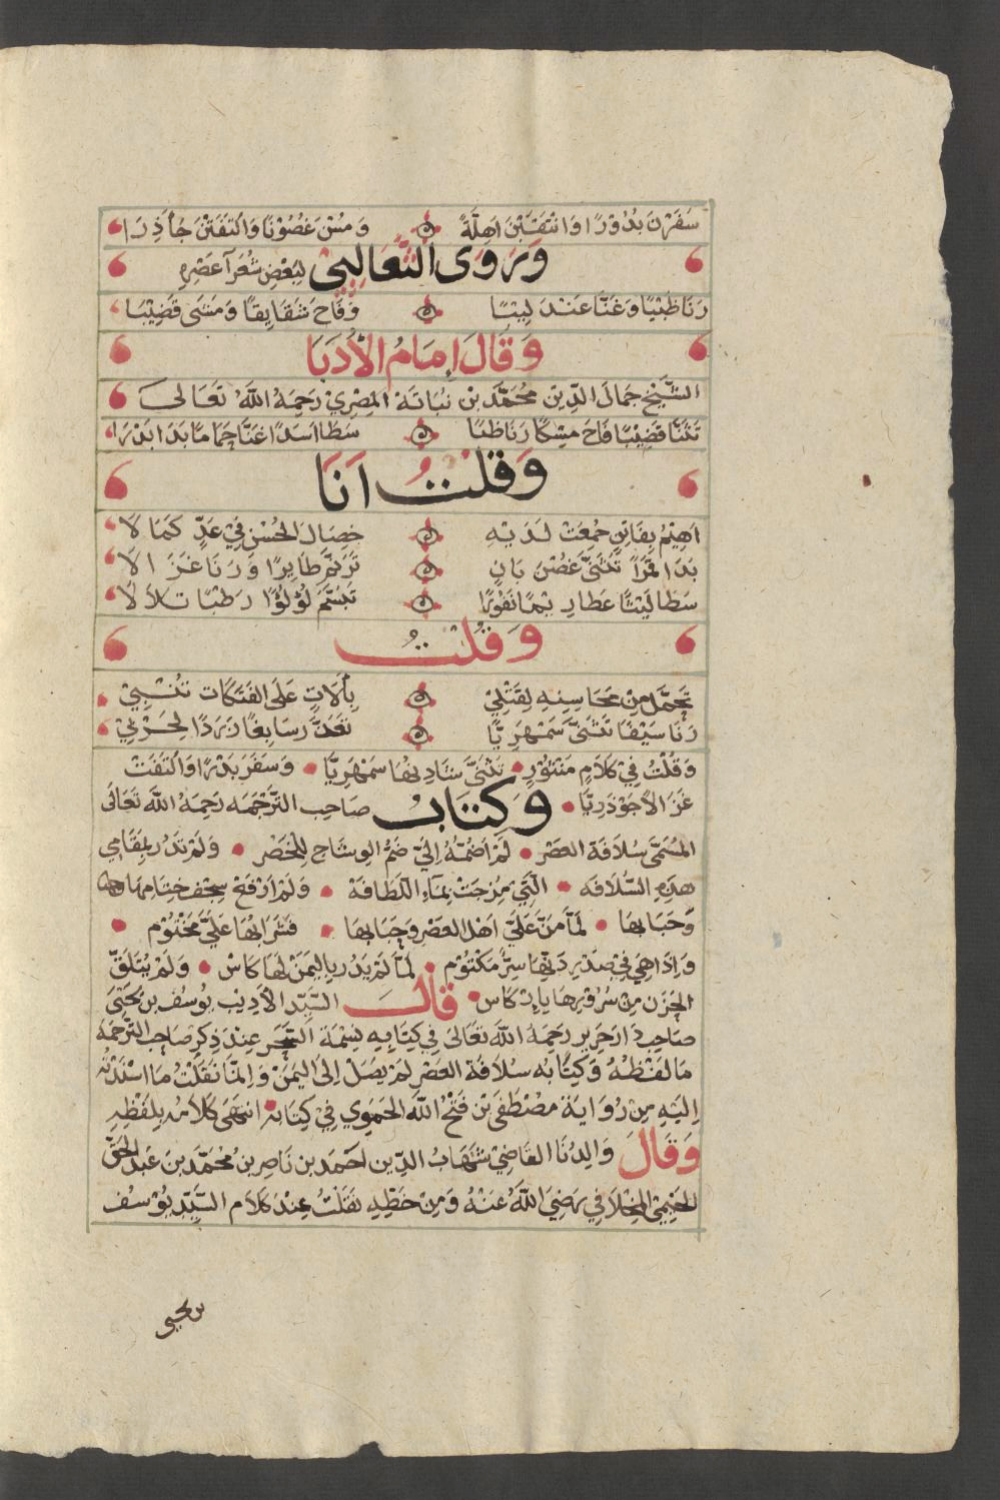 سَفَرْنَ بُدُوْرًا وَانْتَقَبْنَ اَهِلَّةً ۞ وَمِسْنَ غُصُوْنًا وَالْتَفَتْنَ جَآذِرَا
وَرَوَى الثَّعَالِبِيْ لِبَعْضِ شُعَرَآ عَصْرِهِ
رَنَا ظَبْيًا وَغَنَّا عَنْدَلِيْبًا ۞ وَفَاحَ شَقَايِقًا وَمَشَى قَضِيْبَا
وَقَالَ اِمَامُ الْاُدَبَا
الشَّيْخ جَمَال الدِّين مُحَمَّد بن نُبَاتَة المِصْرِيْ رَحِمَهُ اللَّه تَعَالى
تَثَنَّا قَضِيْبًا فَاحَ مِسْكًا رَنَا ظَبْيًا ۞ سَطَا اَسَدًا غَنَّا حَمَامًا بَدَا بَدْرَا
وَقُلْتُ اَنَا
اَهِيْمُ بِفَاتِنٍ جُمِعَتْ لَدَيْهِ ۞ خِصَالُ الْحُسْنِ فِيْ عَدٍّ كَمَالَا
بَدَا قَمَرًا تَثَنَّىْ غُصْنَ بَانٍ ۞ تَرَنَّمَ طَايِرًا وَرَنَا غَزَالَا
سَطَا لَيْثًا عَطَا رِيْمًا نَفُوْرًا ۞ تَبَسَّمَ لُؤْلُؤًا رَطْبًا تَلَالَا
وَقُلْتُ
تَجَمَّلَ مِنْ مَحَاسِنِهِ لِقَتْلِيْ ۞ بِاٰلَاتٍ عَلَى الْفَتَكَاتِ تُنْبِيْ
رَنَا سَيْفًا تَثَنَّىْ سَمْهَرِيًّا ۞ تَعَذَّرَ سَابِغًا زَرَدًا لِحَرْبِيْ
وَقُلْتُ فِيْ كَلَامٍ مَنْثُوْرٍ • تَثَنَّىْ شَادِنُهَا سَمْهَرِيًّا • وَسَفَرَ بَدْرًا وَالْتَفَتَ
غَزَالًا جَوْذَرِيًّا • وَكِتَابُ صَاحِب التَّرْجَمَه رَحِمَهُ اللَّه تَعَالى
المُسَمَّى سُلَافَة العَصْر • لَمْ اَضُمّهُ اِلَيَّ ضَمُّ الوِشَاحِ لِلْخَصْر • وَلَمْ تَدُر بِمَقَامِي
هذِهِ السُّلَافَه • الَّتِيْ مُزِجَتْ بِمَآءِ اللَّطَافَة • وَلَمْ اَرْفَعْ سِجْف خِتَامِهَا
وَحَبَابِهَا • لَمَّا مَنَّ عَلَى اَهْل العَصْرِ وَحَبَا بِهَا • فَشَرَابُهَا عَلَيَّ مَخْتُوْم •
وَاِذَا هِيَ فِيْ صَدْرِ دَنِّهَا سِرٌّ مَكْتُوْم • لَمَّا لَمْ يَدُر بِاليَمَنْ لَهَا كَاس • وَلَمْ يَتَلَقَّ
الحُزْن مِنْ سُرُوْرِهَا بِاِرْكَاس • قَالَ السَّيِّد الاَدِيْب يُوسُف بن يَحْيَىْ
صَاحِب رَحِمَهُ اللَّه تَعَالى فِي كِتَابِهِ نِسْمَة السَّحَر عِنْدَ ذِكرِ صَاحِب التَّرْجَمَة
مَا لَفْظُهُ وَكِتَابُه سُلَافَة العَصْر لَمْ يَصِل اِلى اليَمَنْ وَاِنَّمَا نَقَلْتُ مَا اسْنَدْتُه
اِلَيْهِ مِن رِوَايَة مُصْطَفَى بن فَتْح اللَّه الحَمَوِي فِيْ كِتَابه • انتهَى كَلَامُه بِلَفْظِهِ
وَقَالَ وَالِدُنَا القَاضِيْ شِهَابُ الدِّين اَحْمَد بن نَاصِر بن مُحَمَّد بن عَبد الحَقّ
المِخْلَافِي رَضِيَ اللَّهُ عَنْهُ وَمِنْ خَطِّهِ نَقَلْتُ عِنْدَ كَلَام السَّيِّد يُوْسُف
بن يحيى